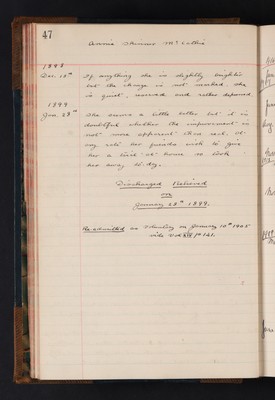 47
Annie Skinner McCallin
1898
Dec. 13th If anything she is slightly brighter
but the change is not marked she
is quiet, unused and rather depressed
1899
Jan. 28th She seems a little better but it is
doubtful whether the improvement is
not more apparent than real. At
any rate her friends wish to give
her a trial at home so took
her away to-day.
Discharged Relieved
on
January 28th 1899.
Re-admitted as Voluntary on January 10th 1905
vide Vol XIII p. 141.